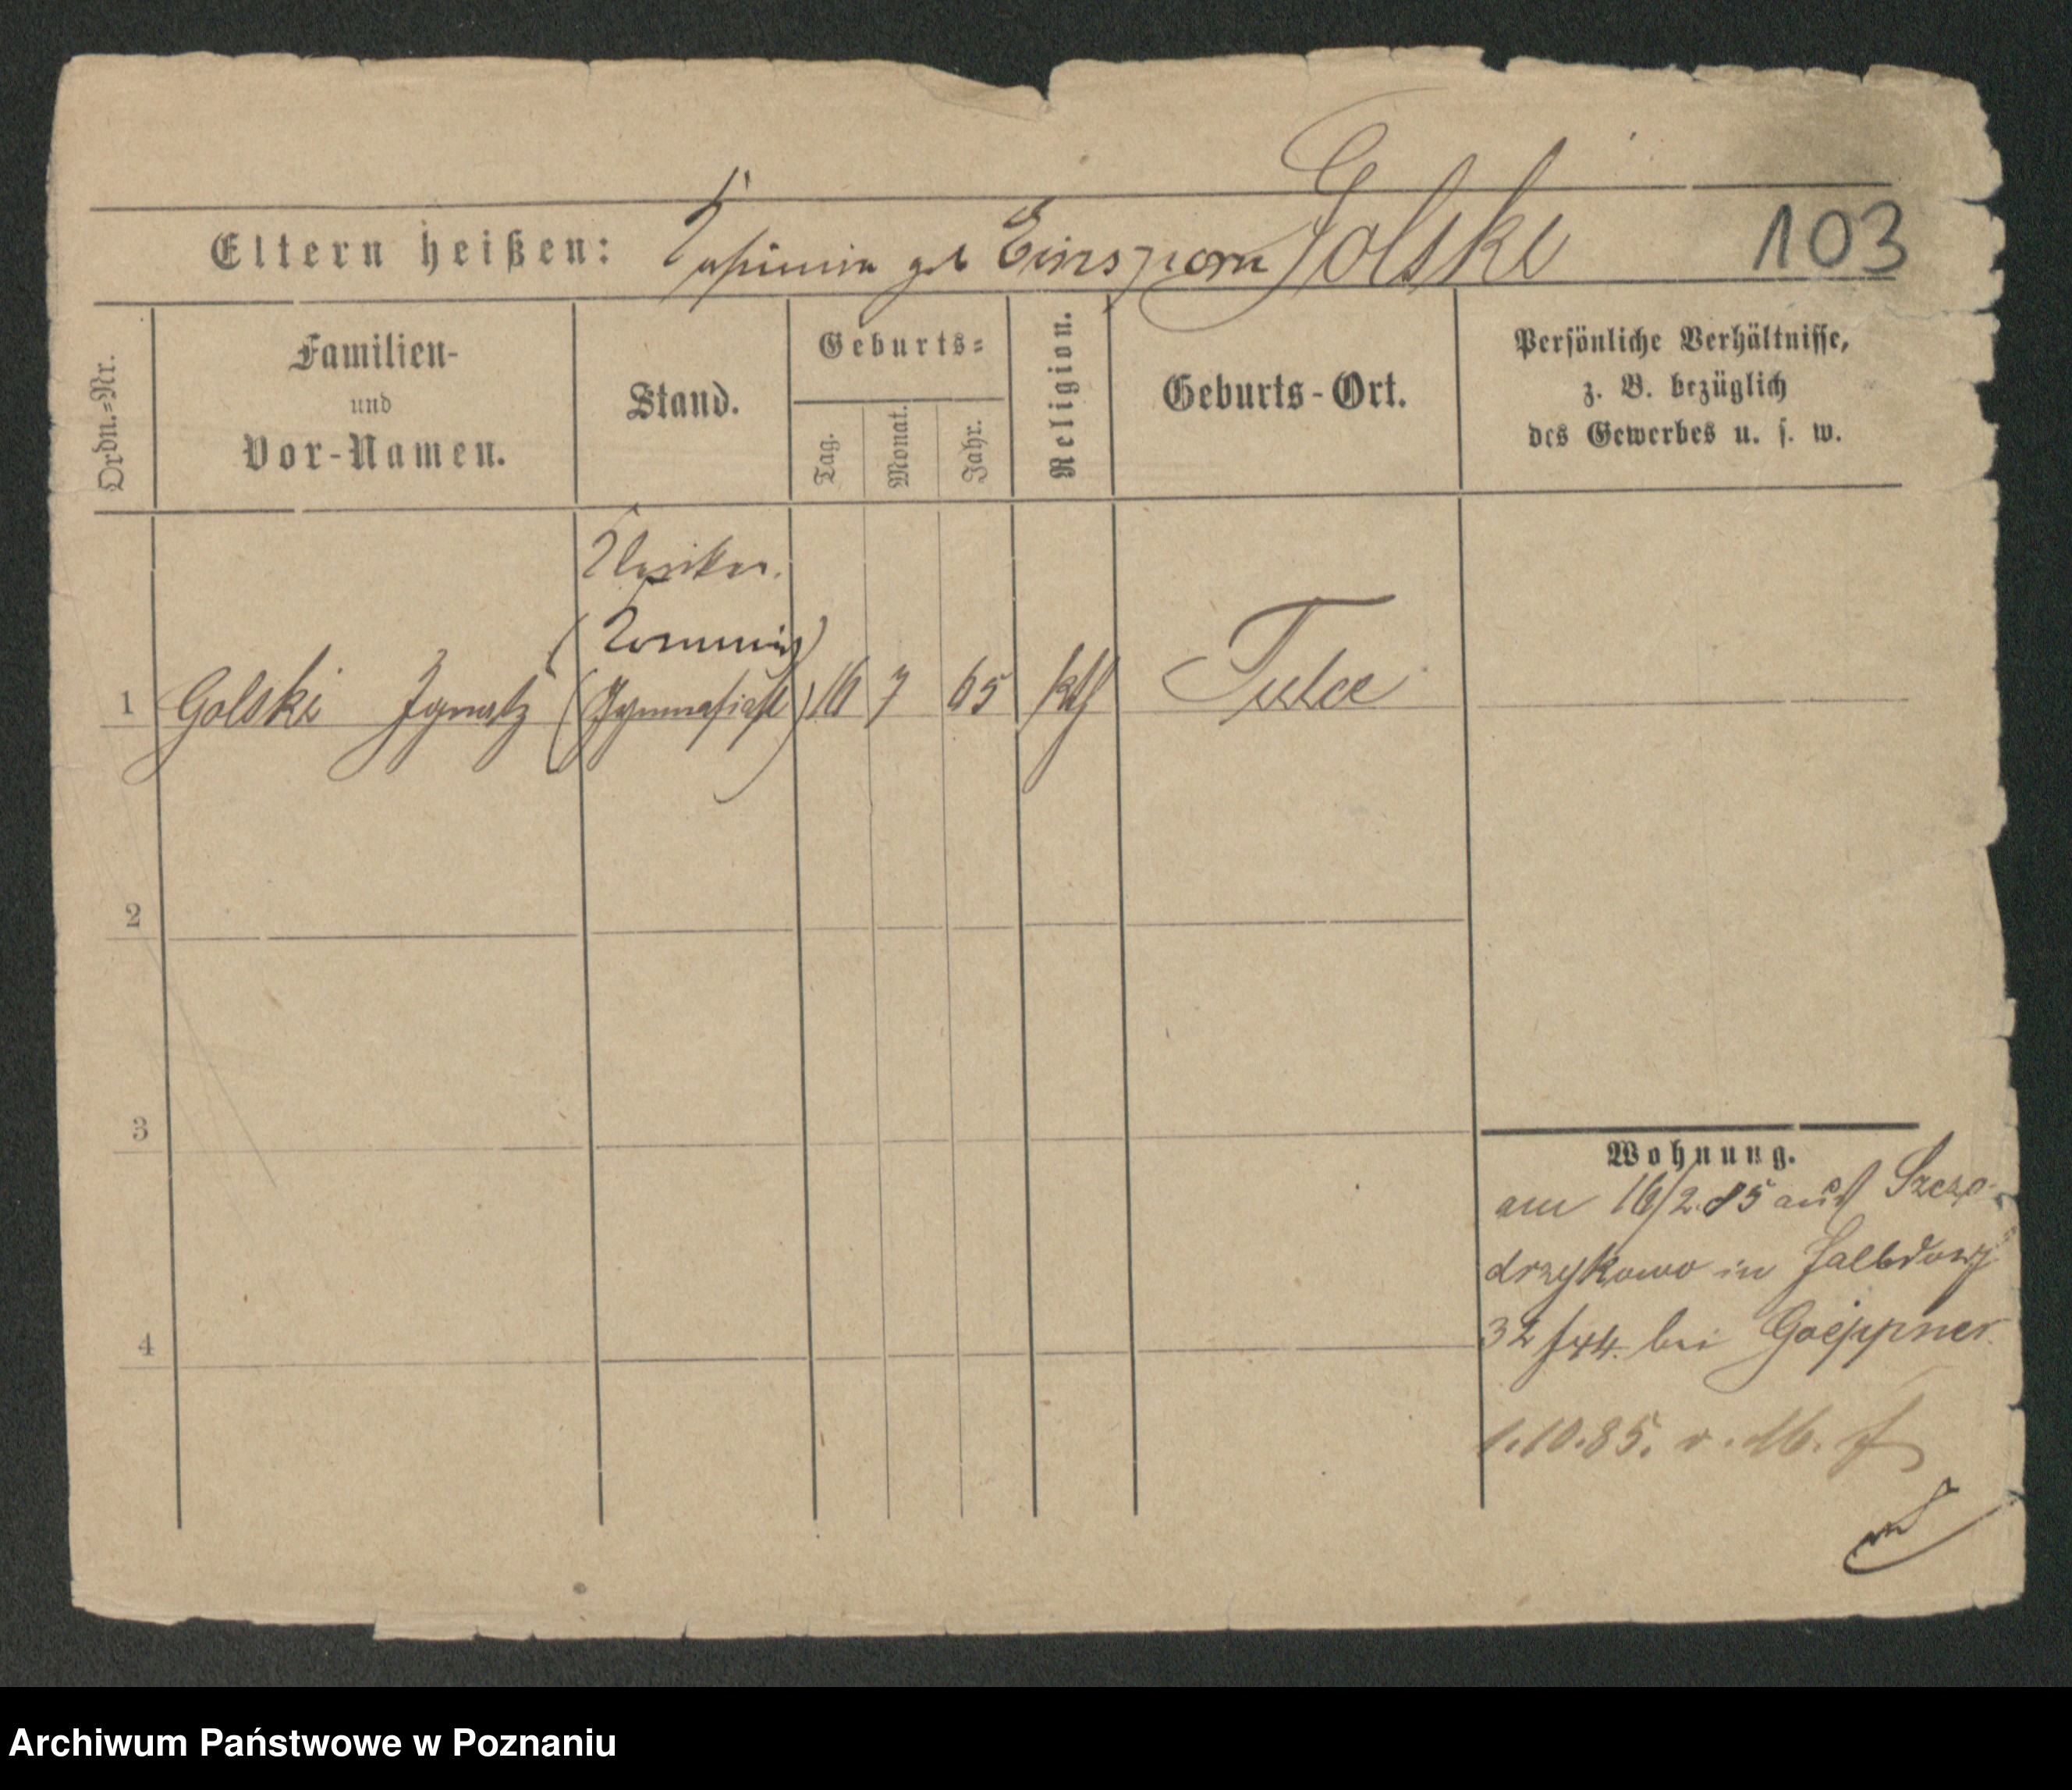 Golski
Eltern heißen: geb Einsporn 103
Ordn.=Nr.
Familien-
und
Vor-Namen.
Stand.
Geburts=
Tag.
Monat.
Jahr.
Religion.
Geburts-Ort.
Persönliche Verhältnisse,
z. B. bezüglich
des Gewerbes u. s. w.
(Commis)
1 Golski Ignatz (Gymnasiast) 16 7 65 kth Tulce
2
3
4
Wohnung.
am 16/2.85 aus Szczo-
drzykowo in Halbdorf
32 bei Goeppner
1.10.85. v. M.
Archiwum Państwowe w Poznaniu